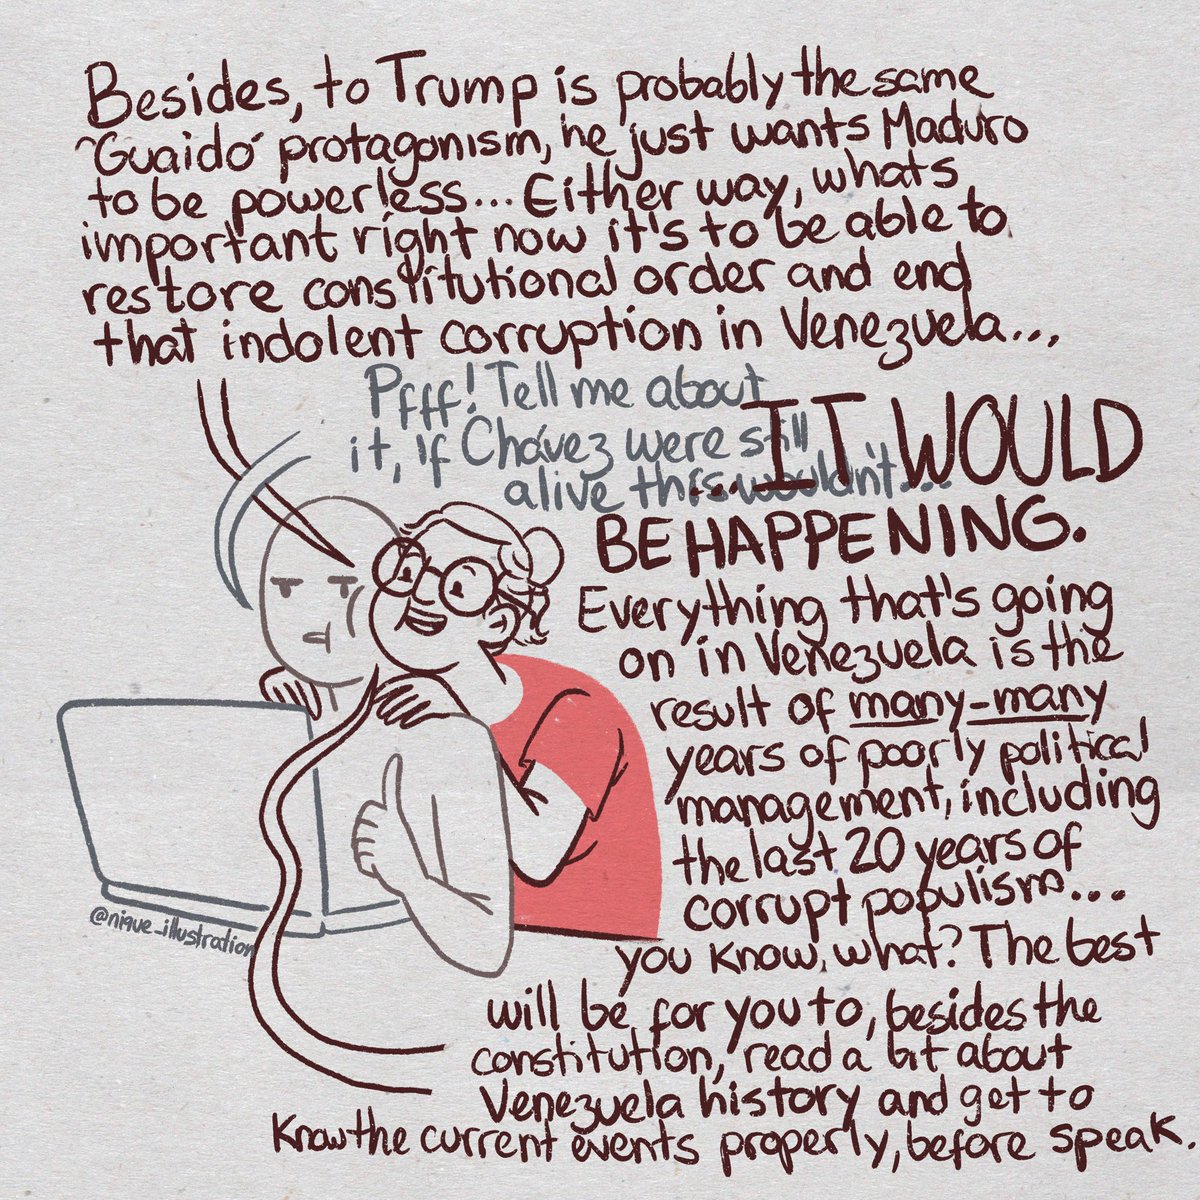 Besides, to Trump is probably the same
"Guaidó" protagonism, he just wants Maduro
to be powerless... Either way, whats
important right now it's to be able to
restore constitutional order and end
that indolent corruption in Venezuela...
Pfff! Tell me about
it, If Chávez were still
alive this wouldn't...
...IT WOULD
BE HAPPENING.
Everything that's going
on in Venezuela is the
result of many-many
years of poorly political
management, including
the last 20 years of
corrupt populism...
you know, what? The best
will be for you to, besides the
constitution, read a bit about
Venezuela history and get to
know the current events properly, before speak.
@nique_illustration